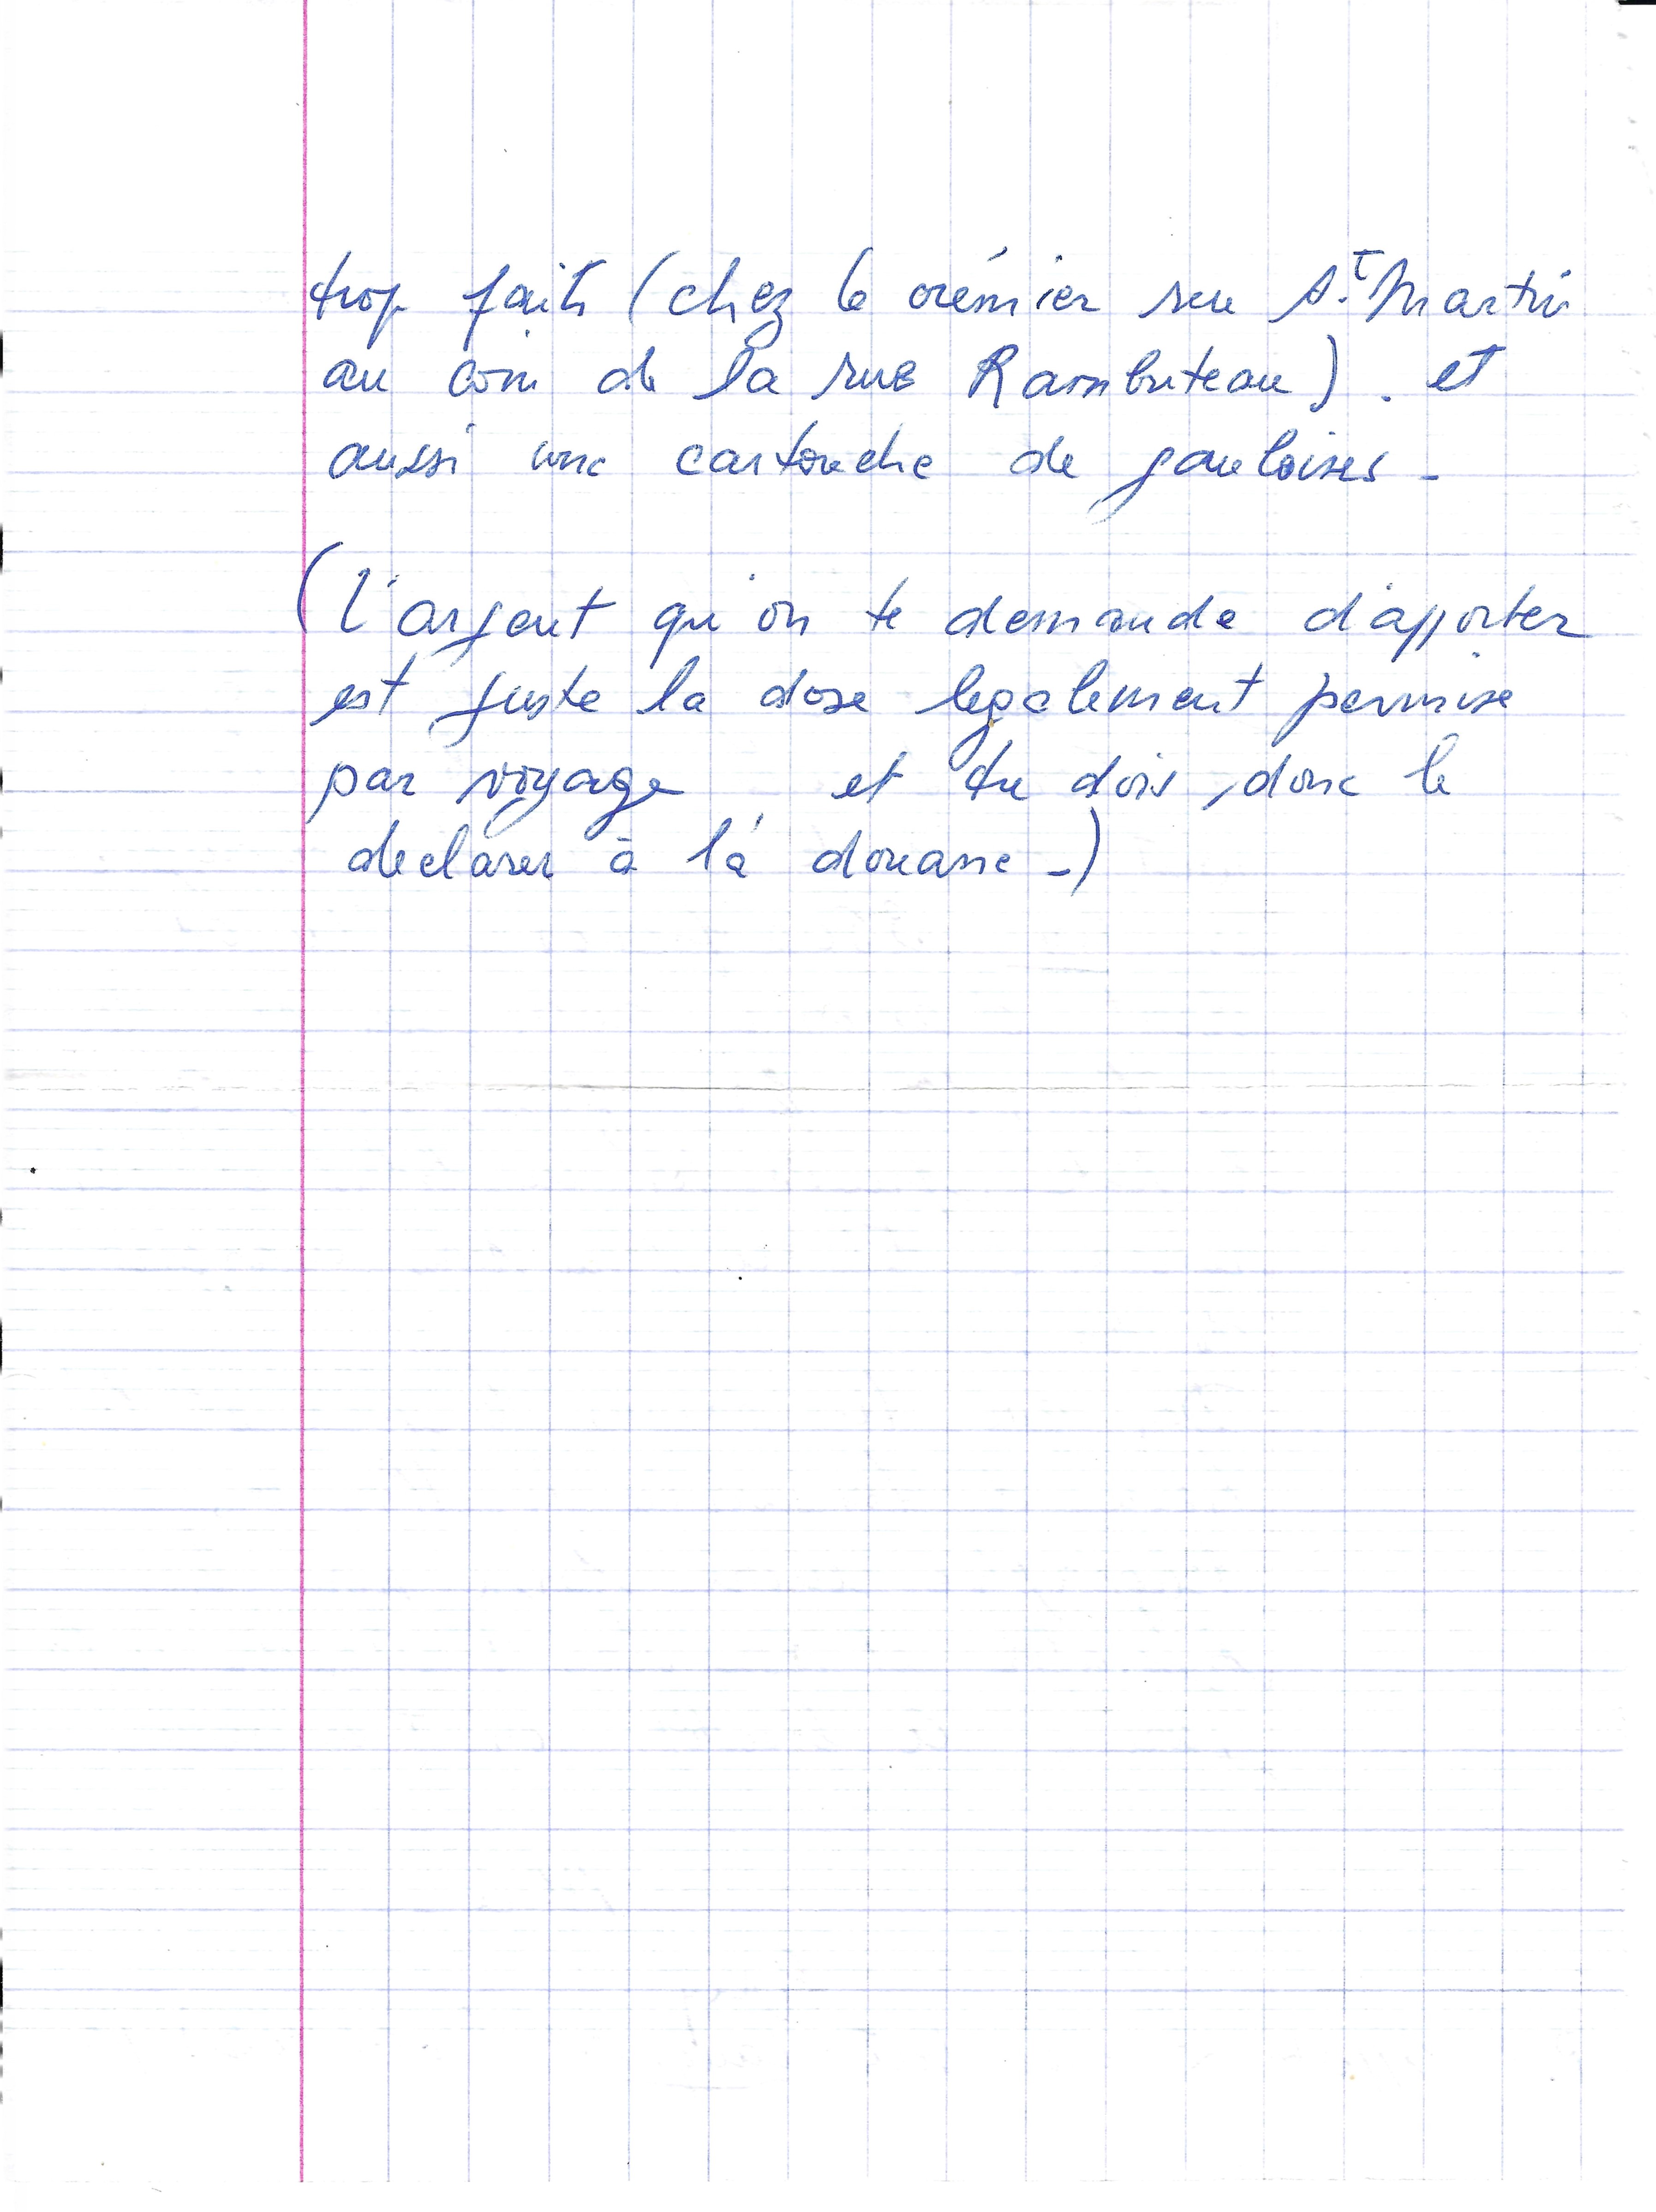 trop faits (chez le crémier rue St. Martin
au coin de la rue Rambuteau). et
aussi une cartouche de gauloises -
(L'argent qu'on te demande d'apporter
est juste la dose legalement permise
par voyage et tu dois, donc le
declarer à la douane -)